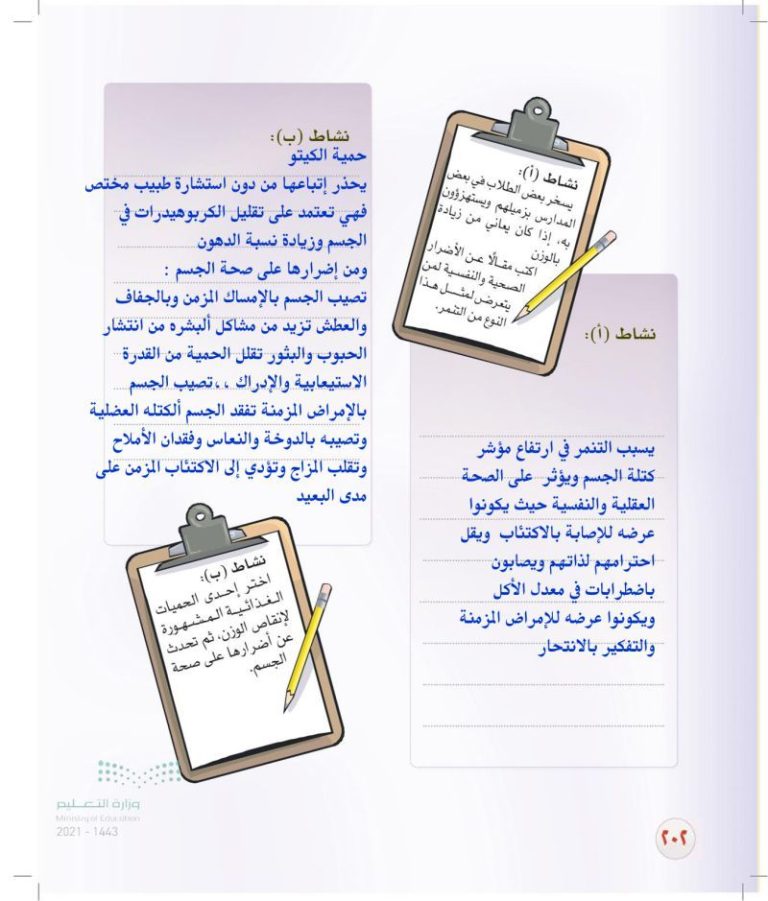 نشاط (أ):
يسخر بعض الطلاب في بعض
المدارس بزميلهم ويستهزؤون
به، إذا كان يعاني من زيادة
بالوزن
اكتب مقالًا عن الأضرار
الصحية والنفسية لمن
يتعرض لمثل هذا
النوع من التنمر.
نشاط (أ):
يسبب التنمر في ارتفاع مؤشر
كتلة الجسم ويؤثر على الصحة
العقلية والنفسية حيث يكونوا
عرضه للإصابة بالاكتئاب ويقل
احترامهم لذاتهم ويصابون
باضطرابات في معدل الأكل
ويكونوا عرضه للإمراض المزمنة
والتفكير بالانتحار
نشاط (ب):
حمية الكيتو
يحذر إتباعها من دون استشارة طبيب مختص
فهي تعتمد على تقليل الكربوهيدرات في
الجسم وزيادة نسبة الدهون
ومن إضرارها على صحة الجسم :
تصيب الجسم بالإمساك المزمن وبالجفاف
والعطش تزيد من مشاكل ألبشره من انتشار
الحبوب والبثور تقلل الحمية من القدرة
الاستيعابية والإدراك ،، تصيب الجسم
بالإمراض المزمنة تفقد الجسم ألكتله العضلية
وتصيبه بالدوخة والنعاس وفقدان الأملاح
وتقلب المزاج وتؤدي إلى الاكتئاب المزمن على
مدى البعيد
نشاط (ب):
اختر إحدى الحميات
الغذائية المشهورة
لإنقاص الوزن، ثم تحدث
عن أضرارها على صحة
الجسم.
وزارة التعليم
Ministry of Education
2021 - 1443
٢٠٢